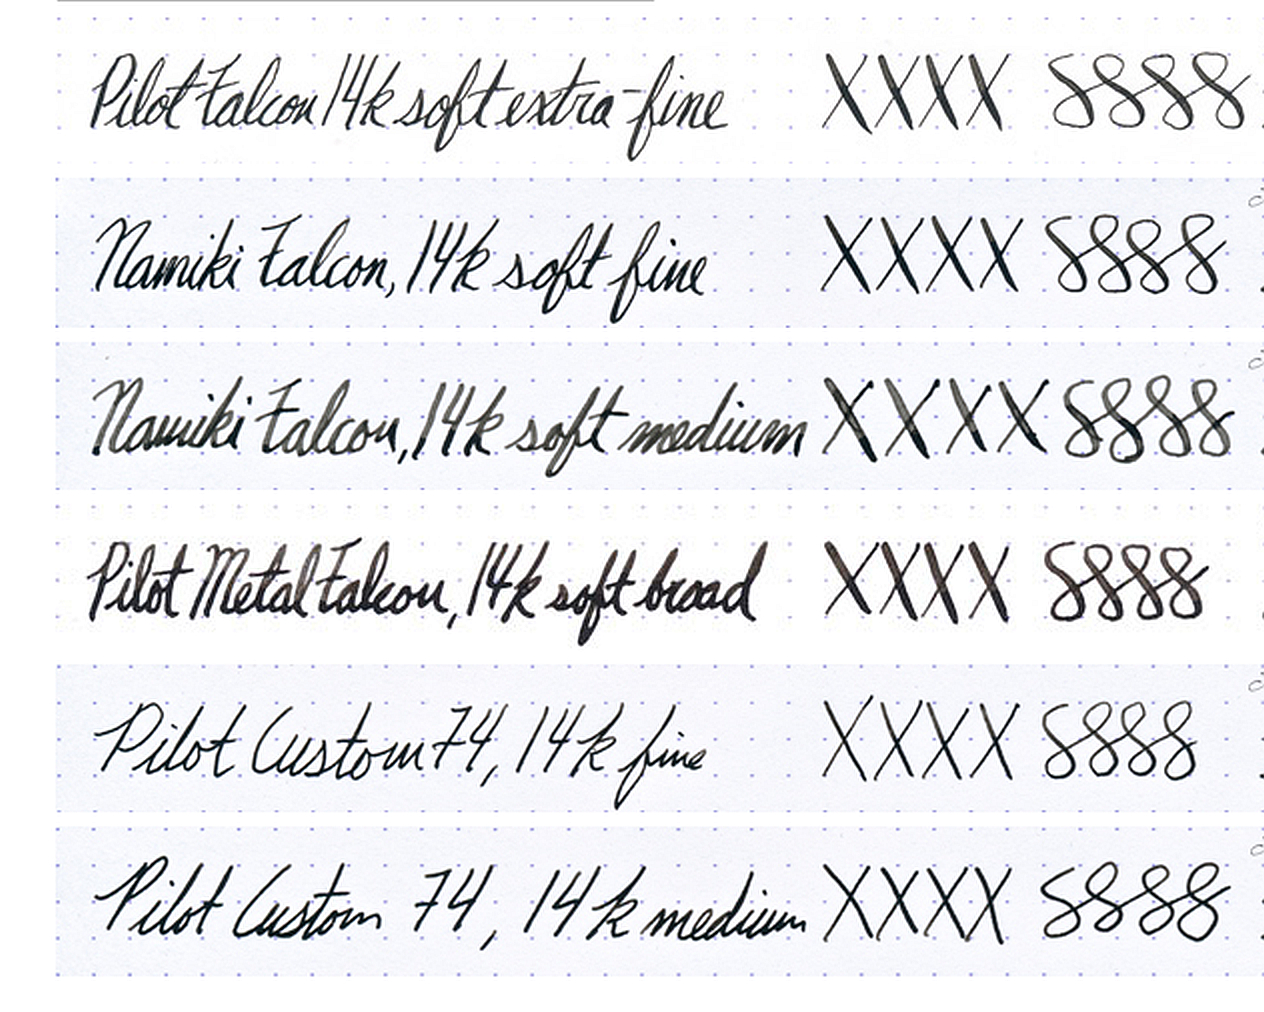 Pilot Falcon 14k soft extra-fine XXXX 8888
Namiki Falcon, 14k soft fine XXXX 8888
Namiki Falcon, 14k soft medium XXXX 8888
Pilot Metal Falcon, 14k soft broad XXXX 8888
Pilot Custom 74, 14k fine XXXX 8888
Pilot Custom 74, 14k medium XXXX 8888